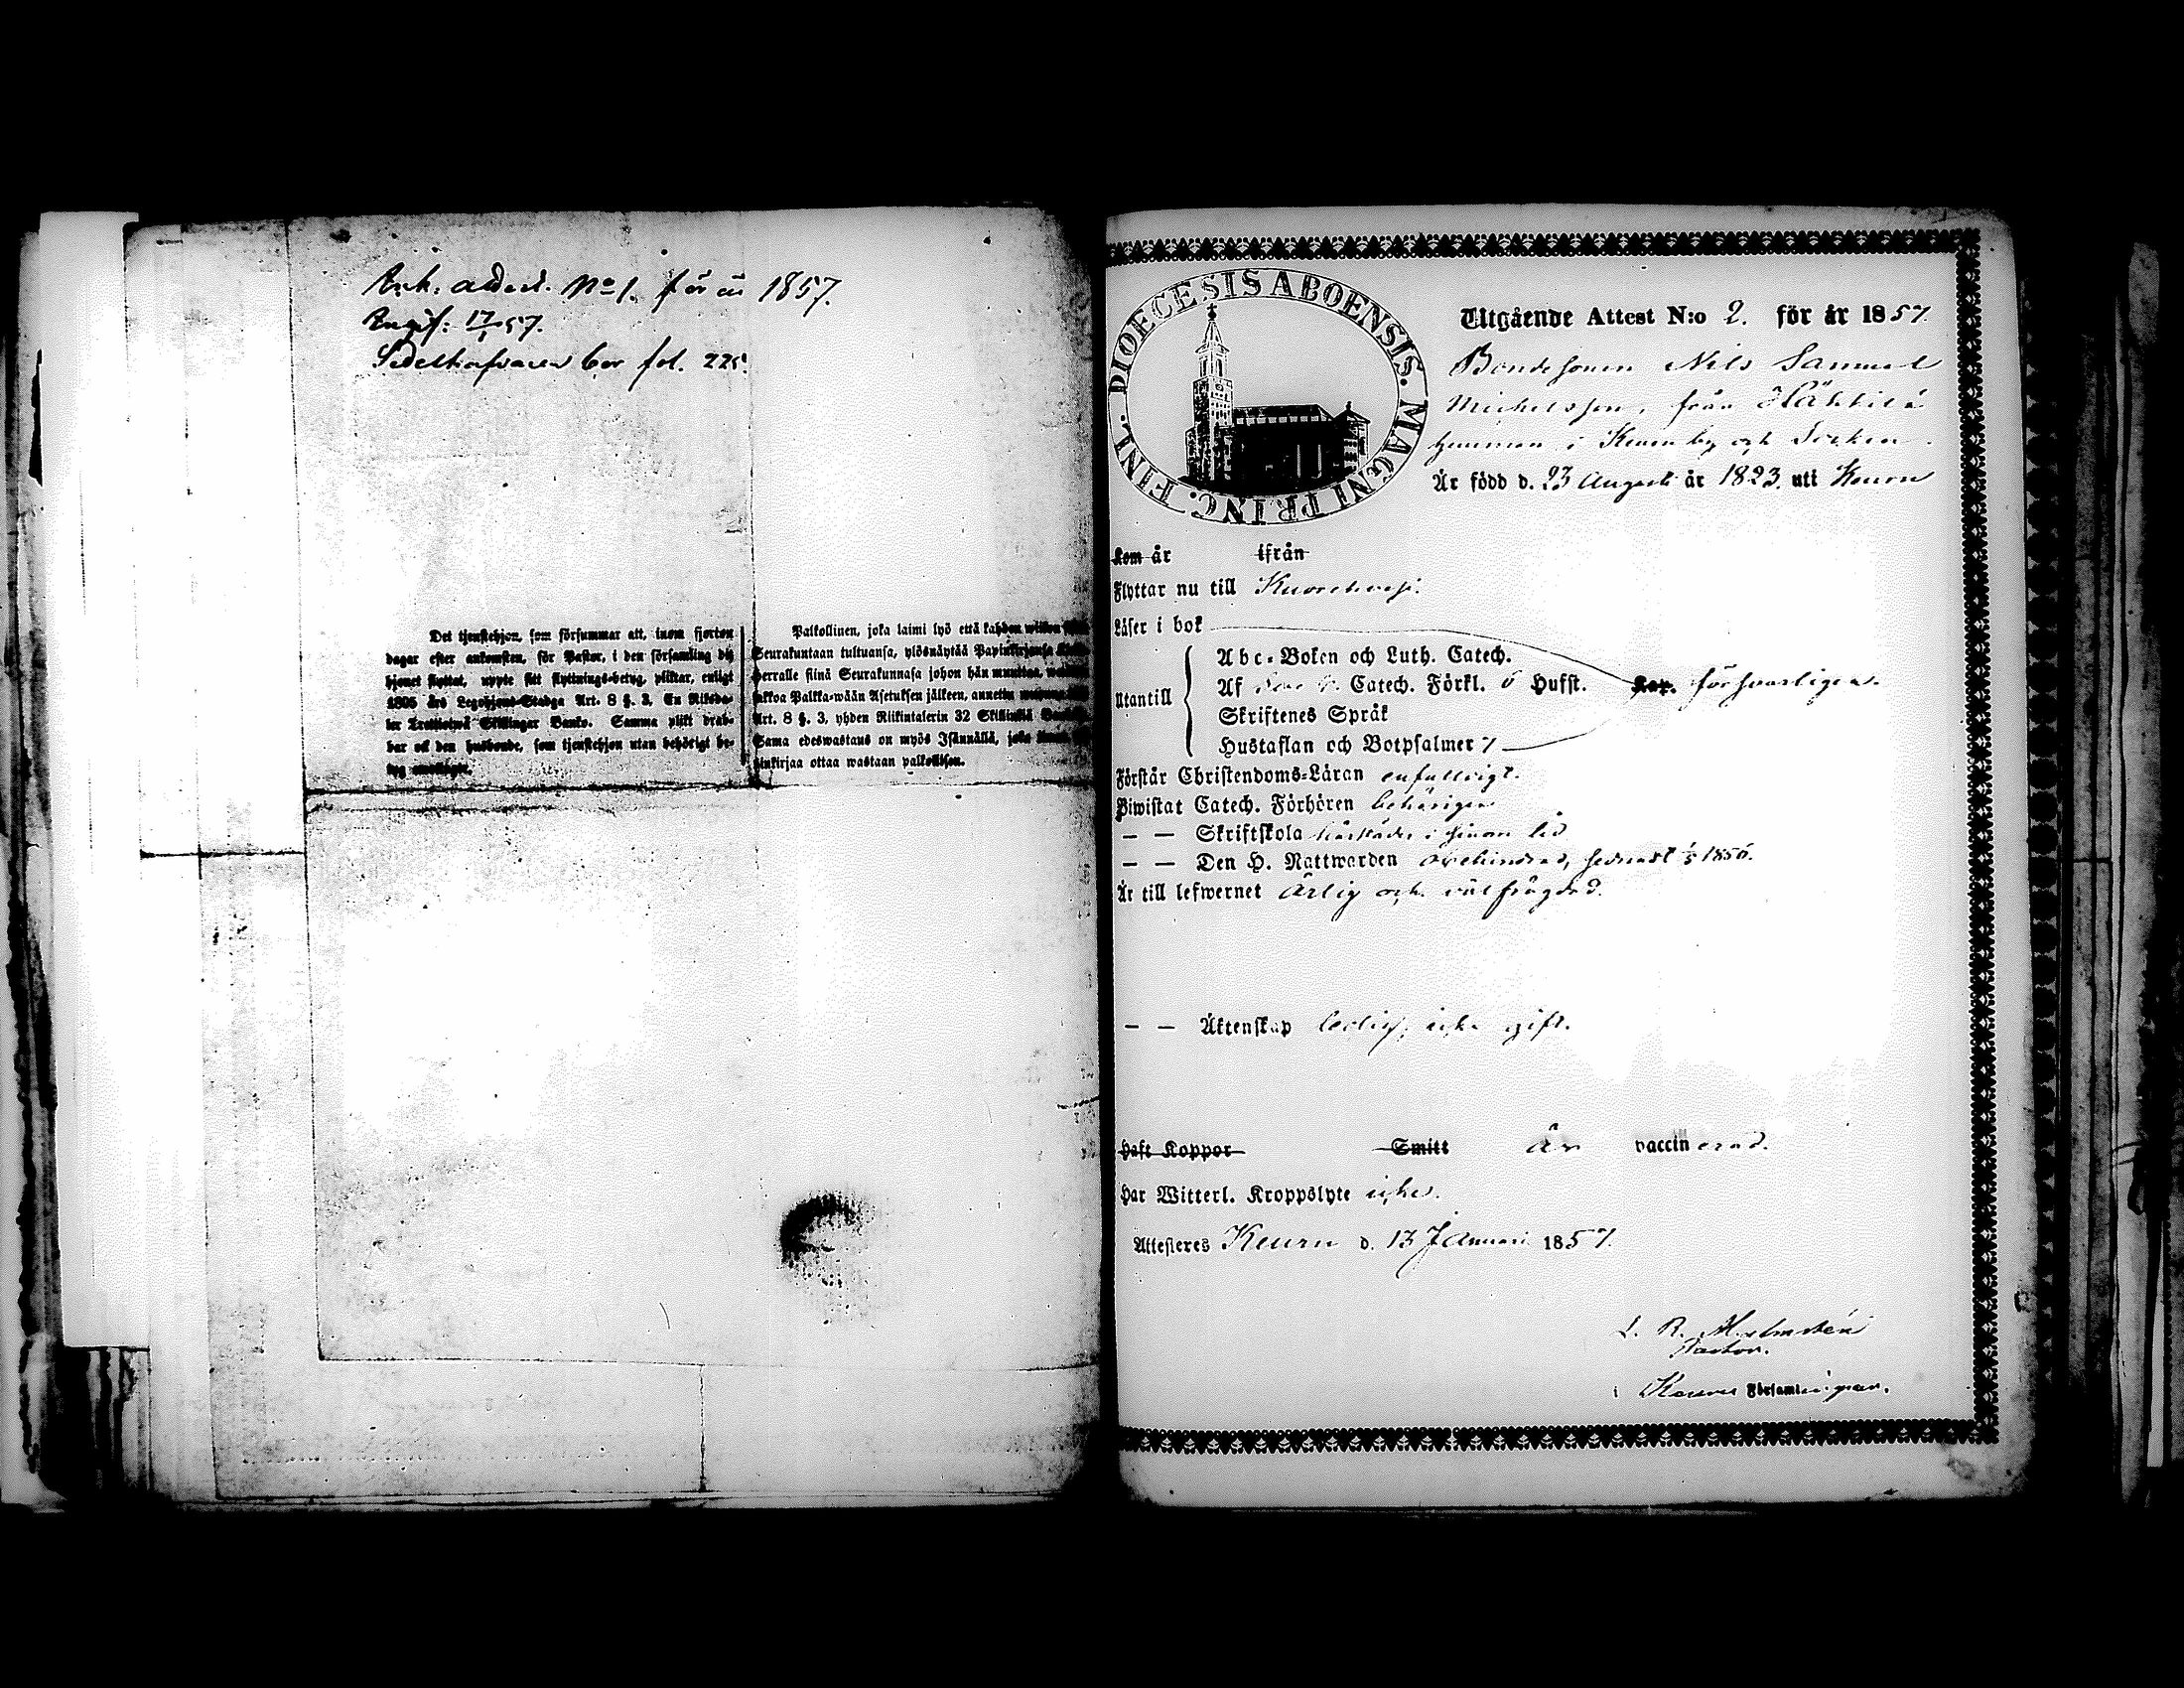 Ank. attest. No 1. för år 1857.
Angif: 17/1 57.
Sedelhafvaren bor fol. 225.
Det tjenstehjon, som försummar att, inom fjorton
dagar efter ankomsten, för Pastor, i den församling dit
hjonet flyttat, uppte sitt flyttnings-betyg, pliktar, enligt
1805 års Legohjons-Stadga Art. 8 §. 3, En Riksda-
ler Trettiotwå Skillingar Banko. Samma plikt drab-
bar ock den husbonde, som tjenstehjon utan behörigt be-
tyg
Palkollinen, joka laimi lyö että kahden wiikon
Seurakuntaan tultuansa, ylösnäytää Papinkirjansa
herralle siinä Seurakunnasa johon hän muuttaa,
sakkoa Palkka-wään Asetuksen jälkeen, annettu
Art. 8 §. 3, yhden Riikintalerin 32 Skillinkiä
Sama edeswastaus on myös Isännällä, joka
pinkirjaa ottaa wastaan palkollisen.
DIOECESIS ABOENSIS. MAGNI PRINC. FINL.
Utgående Attest N:o 2. för år 1857.
Bondesonen Nils Samuel
Michelsson, från Häkkilä
hemman i Keuru by och Socken.
Är född d. 23 Augusti år 1823. uti Keuru
Kom år ifrån
Flyttar nu till Kuorehvesi.
Läser i bok
Utantill
Abc-Boken och Luth. Catech.
Af Catech. Förkl. 6 Hufst. försvarligen.
Skriftenes Språk
Hustaflan och Botpsalmer 7
Förstår Christendoms-Läran enfalldigt.
Biwistat Catech. Förhören behörigen
— — Skriftskola härstädes i sinom tid
— — Den H. Nattwarden obehindrad, sednast 1856.
Är till lefwernet Ärlig och välfrägdad.
— — Äktenskap ledig, icke gift.
Haft Koppor Smitt Är vaccinerad.
Har Witterl. Kroppslyte icke.
Attesteres Keuru d. 13 Januari 1857.
Pastor.
i Keuru Församlingar.